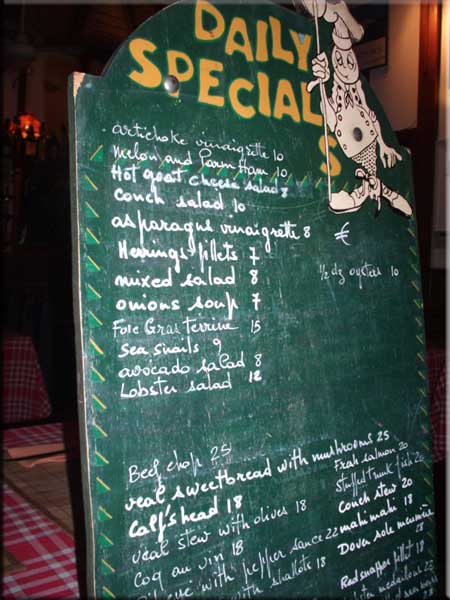 DAILY
SPECIALS
artichoke vinaigrette 10
melon and Parm Ham 10
Hot goat cheese salad 8
conch salad 10
asparagus vinaigrette 8
€
Herrings fillets 7
mixed salad 8
½ dz oysters 10
onions soup 7
Foie Gras terrine 15
sea snails 9
avocado salad 8
Lobster salad 12
Beef chop 25
veal sweetbread with mushrooms 25
calf's head 18
veal stew with olives 18
coq au vin 18
with pepper sauce 22
with shallots 18
Fresh salmon 20
stuffed trunk fish 20
Conch stew 20
mahi mahi 18
Dover sole meunière
18
Red snapper fillet 18
medaillons